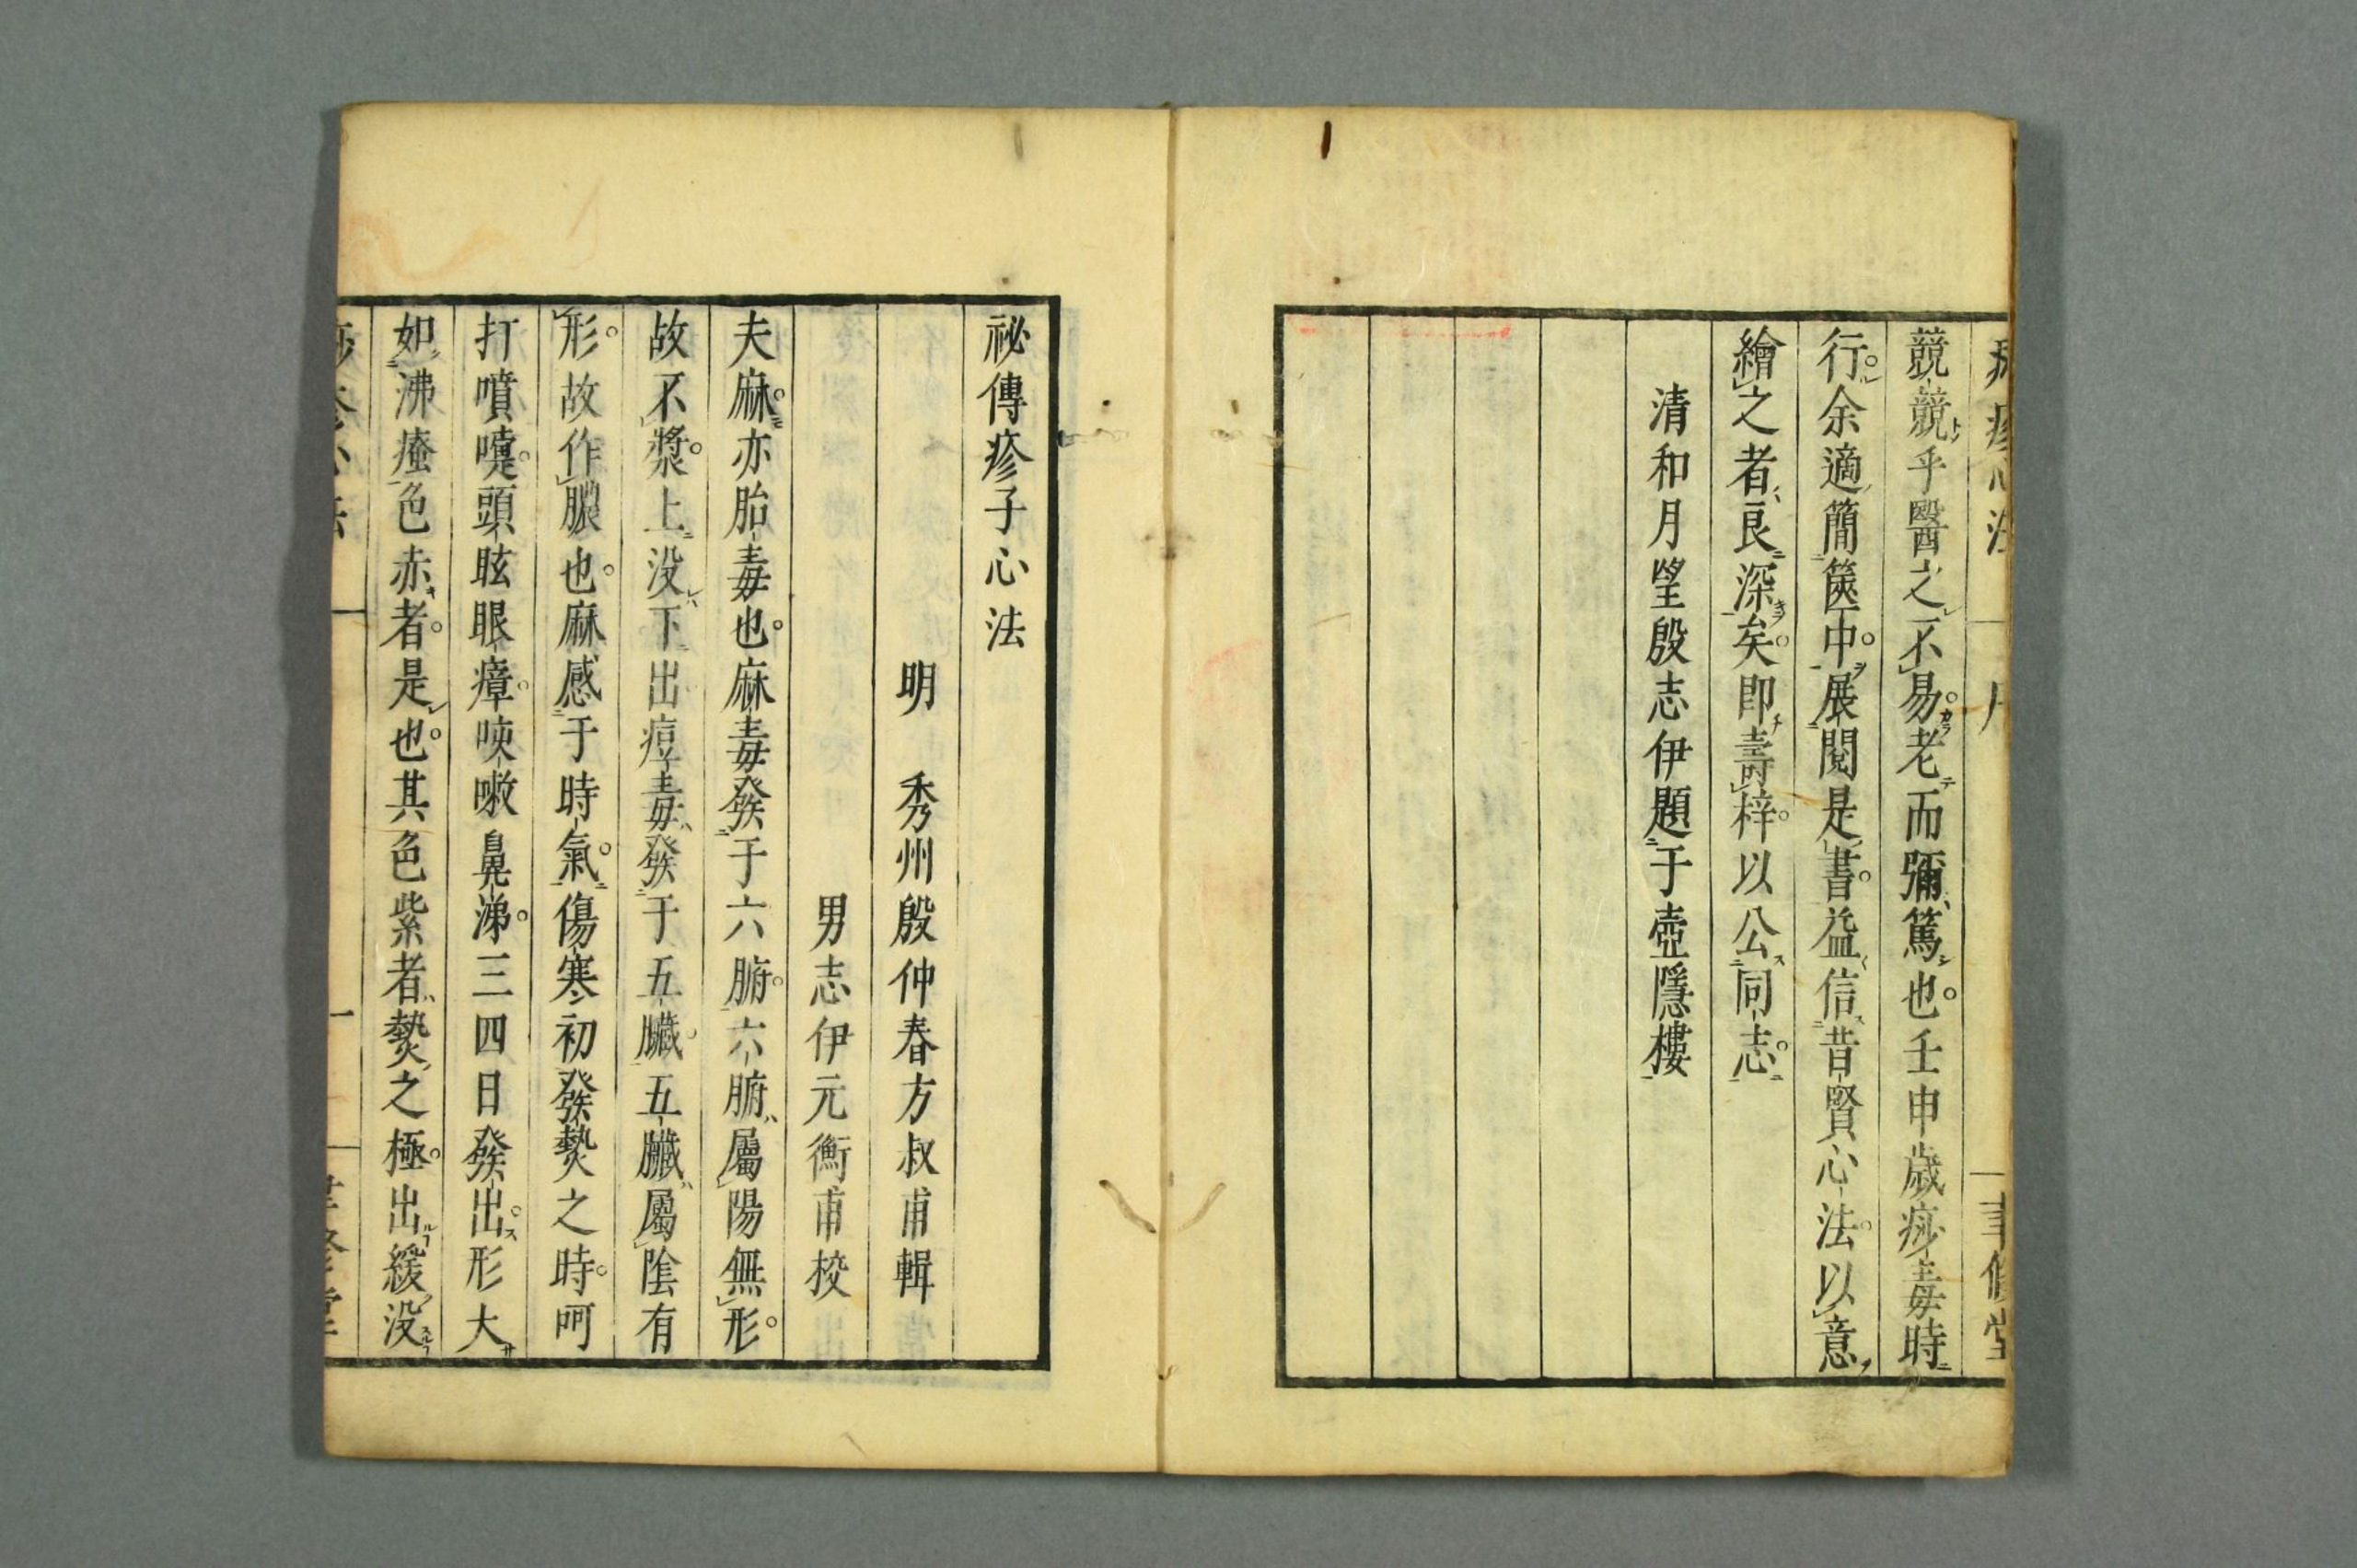 競競乎醫之不易老而彌篤也壬申歲痧毒時
行余適簡篋中展閱是書益信昔賢心法以意
繪之者良深矣即壽梓以公同志
清和月望殷志伊題于壺隱樓
祕傳疹子心法
明　秀州殷仲春方叔甫輯
男志伊元衡甫校
夫麻亦胎毒也麻毒發于六腑六腑屬陽無形
故不漿上没下出痘毒發于五臟五臟屬陰有
形故作膿也麻感于時氣傷寒初發𤍠之時呵
打噴嚏頭眩眼瘴咳嗽鼻涕三四日發出形大
如沸瘂色赤者是也其色紫者𤍠之極出緩没